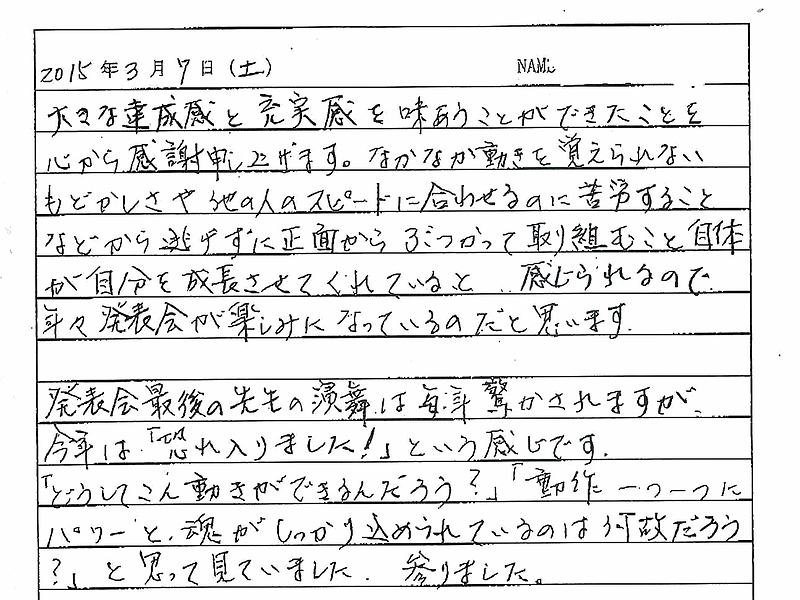 2015年3月7日(土) NAME
大きな達成感と充実感を味あうことができたことを
心から感謝申し上げます。なかなか動きを覚えられない
もどかしさや他の人のスピードに合わせるのに苦労すること
などから逃げずに正面からぶつかって取り組むこと自体
が自分を成長させてくれていると、感じられるので
年々発表会が楽しみになっているのだと思います.
発表会最後の先生の演舞は毎年驚かされますが、
今年は「恐れ入りました!」という感じです.
「どうしてこん動きができるんだろう?」「動作一つ一つに
パワーと、魂がしっかり込められているのは何故だろう
?」と思って見ていました. 参りました。